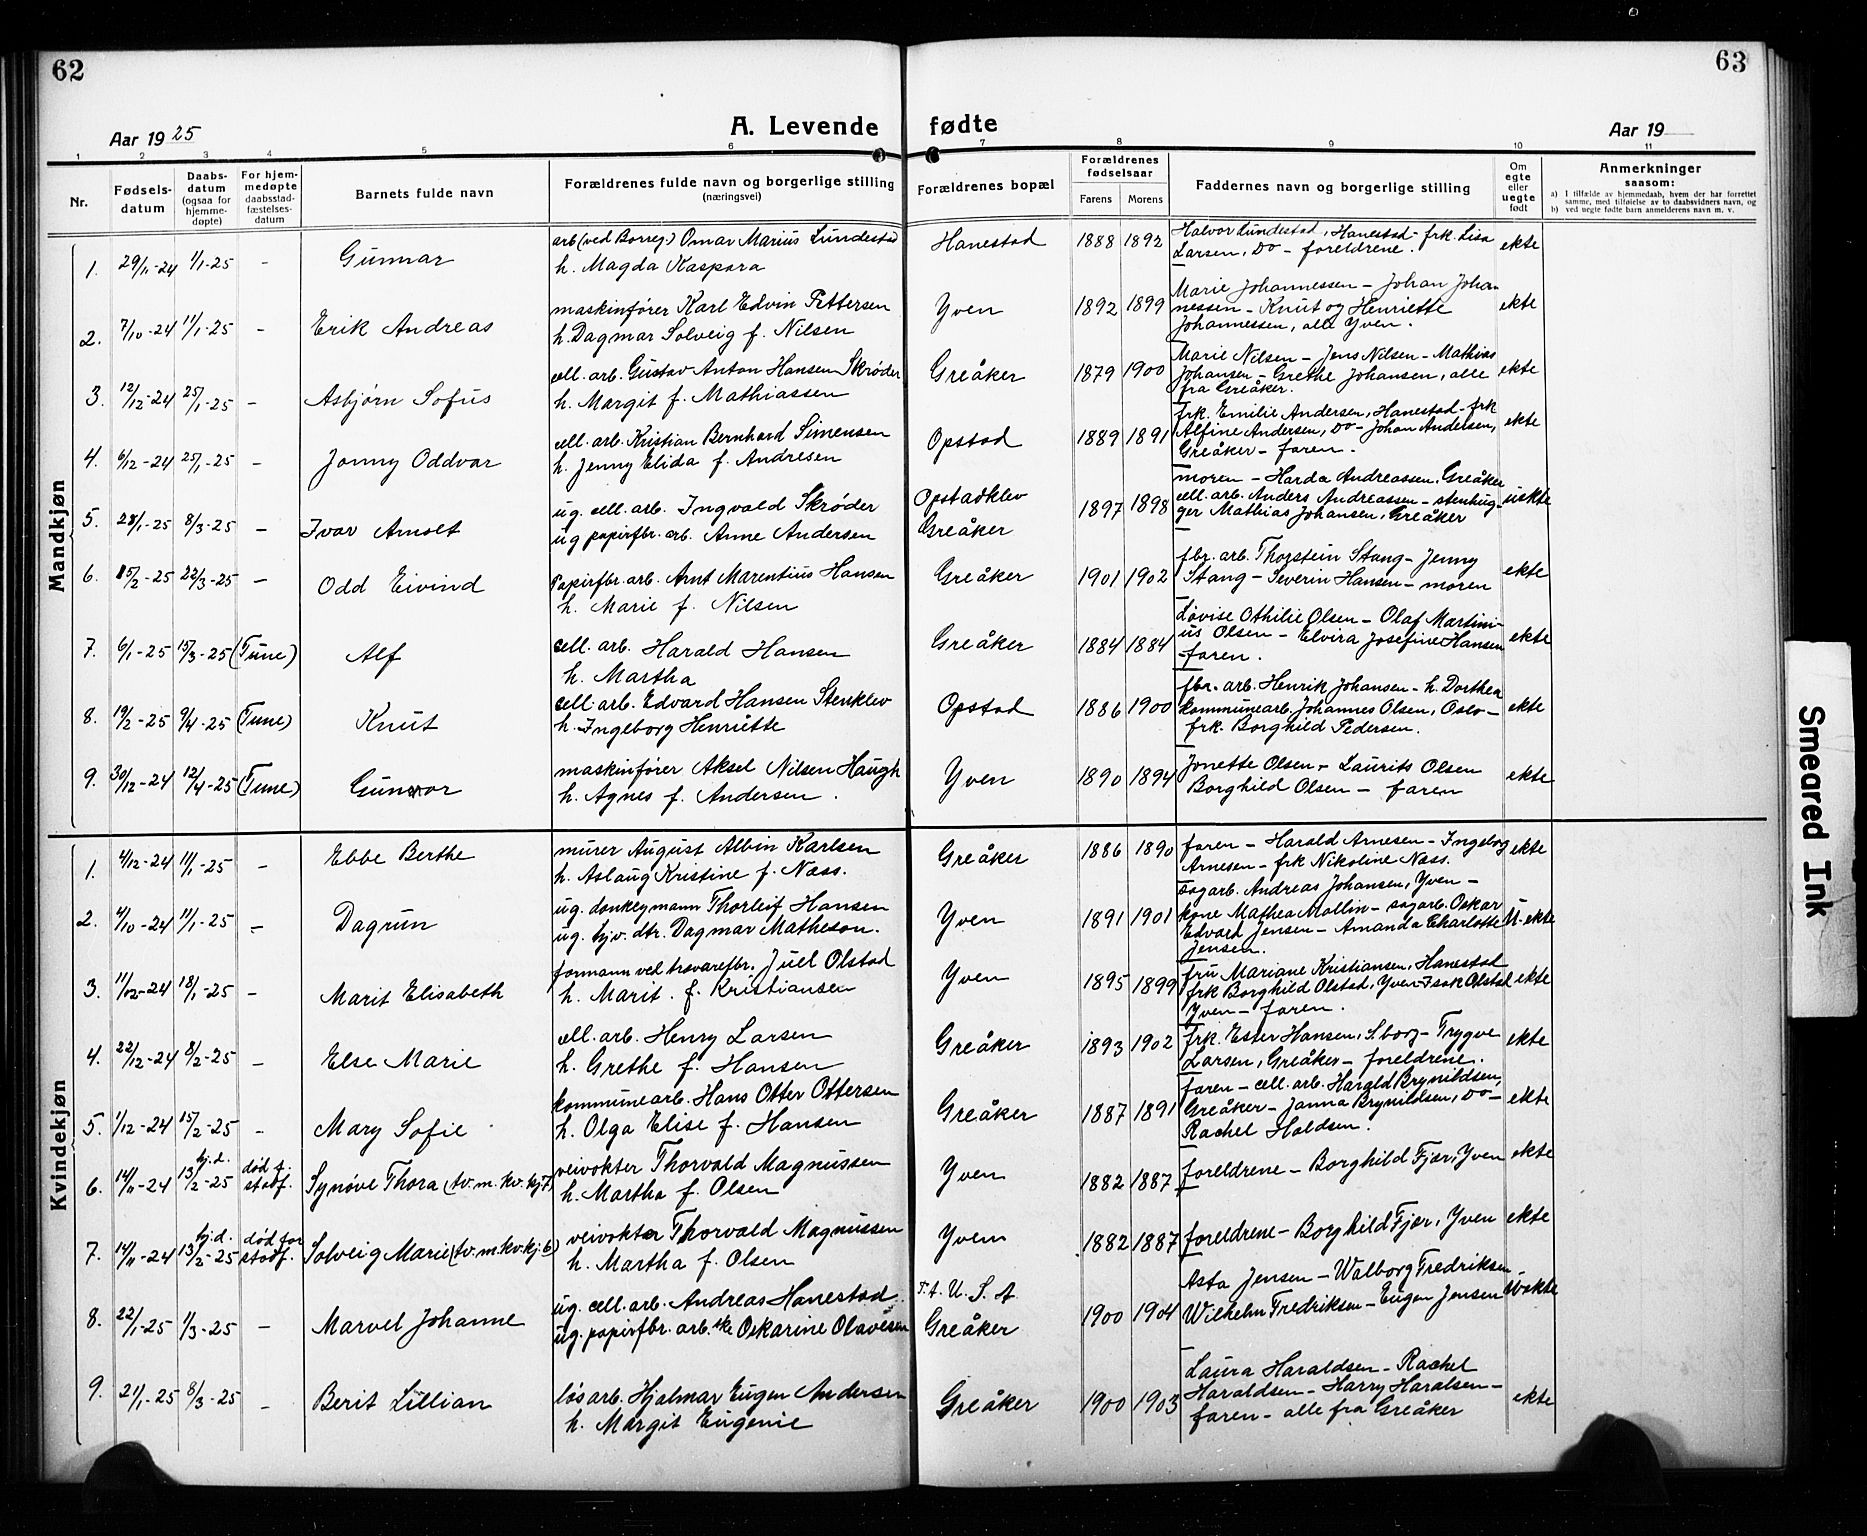 62
63
Aar 1925
A. Levende fødte
Aar 19
1 2 3 4 5 6 7 8 9 10 11
Nr.
Fødsels-datum
Daabs-datum (ogsaa for hjemme-døpte)
For hjem-medøpte daabsstad-fæstelses-datum
Barnets fulde navn
Forældrenes fulde navn og borgerlige stilling
(næringsvei)
Forældrenes bopæl
Forældrenes fødselsaar
Farens
Morens
Faddernes navn og borgerlige stilling
Om egte eller uegte født
Anmerkninger
saasom:
a) I tilfælde av hjemmedaab, hvem der har forrettet samme, med tilføielse av to daabsvidners navn, og
b) ved uegte fødte barn anmelderens navn m. v.
Mandkjøn
1. 29/11-24 1/1-25 - Gunnar
arb (ved Borreg.) Omar Marius Lundestad
h. Magda Kaspara
Hanestad 1888 1892
Halvor Lundestad, Hanestad - frk. Lisa
Larsen, Do - foreldrene.
ekte
2. 7/10-24 11/1-25 - Erik Andreas
maskinfører Karl Edvin Pettersen
h. Dagmar Solveig f. Nilsen
Yven 1892 1899
Marie Johannessen - Johan Johan
nessen - Knut og Henriette
Johannessen, alle Yven.
ekte
3. 12/12-24 25/1-25 - Asbjørn Sofus
cell. arb. Gustav Anton Hansen Skrøder
h. Margit f. Mathiassen
Greåker 1879 1900
Marie Nilsen - Jens Nilsen - Mathias
Johansen - Grethe Johansen, alle
fra Greåker.
ekte
4. 6/12-24 25/1-25 - Jonny Oddvar
cell. arb. Kristian Bernhard Simensen
h. Jenny Elida f. Andresen
Opstad 1889 1891
frk. Emilie Andersen, Hanestad - frk
Alfine Andersen, Do - Johan Andersen,
Greåker - faren.
ekte
5. 8/3-25 - Ivar
ug. cell. arb. Ingvald Skrøder
ug papirfbr. arb. Anne Andersen
Opstadklev
Greåker
1897 1898
moren - Harda Andreassen, Greåker
cell. arb. Anders Andreassen - stenhug-
ger Mathias Johansen, Greåker
uekte
6. 15/2-25 22/3-25 - Odd Eivind
Papirfbr. arb. Arnt Marentius Hansen
h. Marie f. Nilsen
Greåker 1901 1902
fbr. arb. Thorstein Stang - Jenny
Stang - Severin Hansen - moren
ekte
7. 6/1-25 15/3-25 (Tune) Alf
cell. arb. Harald Hansen
h. Martha
Greåker 1884 1884
Lovise Othilie Olsen - Olaf Martini-
us Olsen - Elvira Josefine Hansen
- faren.
ekte
8. 19/2-25 9/4-25 (Tune) Knut
cell. arb. Edvard Hansen Stenklev
h. Ingeborg Henriette
Opstad 1886 1900
fbr. arb. Henrik Johansen - h. Dorthea
kommunearb. Johannes Olsen, Oslo -
frk. Borghild Pedersen.
ekte
9. 30/12-24 12/4-25 (Tune) Gunvor
maskinfører Aksel Nilsen Haugh
h. Agnes f. Andersen.
Yven 1890 1894
Jonette Olsen - Laurits Olsen
Borghild Olsen - faren
ekte
Kvindekjøn
1. 4/12-24 11/1-25 - Ebbe Berthe
murer August Albin Karlsen
h. Aslaug Kristine f. Næss.
Greåker 1886 1890
faren - Harald Arnesen - Ingeborg
Arnesen - frk Nikoline Næss.
ekte
2. 4/10-24 11/1-25 - Dagrun
ug. donkeymann Thorleif Hansen
ug. hjv. dtr. Dagmar Matheson.
Yven 1891 1901
sagarb. Andreas Johansen, Yven -
kone Mathea Mollin - sagarb. Oskar
Edvard Jensen - Amanda Charlotte
Jensen.
U. ekte
3. 11/12-24 18/1-25 - Marit Elisabeth
formann ved trevarefbr. Juel Olstad
h. Marit. f. Kristiansen
Yven 1895 1899
fru Mariane Kristiansen, Hanestad
frk Borghild Olstad, Yven - Isak Olstad
Yven - faren.
ekte
4. 22/12-24 8/2-25 - Else Marie
cell. arb. Henry Larsen
h. Grethe f. Hansen
Greåker 1893 1902
frk. Ester Hansen, S.borg - Trygve
Larsen, Greåker - foreldrene.
ekte
5. 1/12-24 15/2-25 - Mary Sofie
kommunearb. Hans Otter Ottersen
h. Olga Elise f. Hansen
Greåker 1887 1891
faren - cell. arb. Harald Brynildsen,
Greåker - Janna Brynildsen, Do -
Rachel Haldsen.
ekte
6. 14/11-24 hj.d. 13/2-25 død f. stadf. Synøve Thora (tv. m. kv. kj. 7)
veivokter Thorvald Magnussen
h. Martha f. Olsen
Yven 1882 1887
foreldrene - Borghild Fjær, Yven
ekte
7. 14/11-24 hj.d. 13/2-25 død for stadf. Solveig Marie (tv. m. kv. kj. 6)
veivokter Thorvald Magnussen
h. Martha f. Olsen
Yven 1882 1887
foreldrene - Borghild Fjær, Yven
ekte
8. 22/1-25 1/3-25 - Marvel Johanne
ug. cell. arb. Andreas Hanestad
ug. papirfbr. arb.ske Oskarine Olavesen
F.t. U. S. A.
Greåker
1900 1904
Asta Jensen - Walborg Fredriksen
Wilhelm Fredriksen - Eugen Jensen
Uekte
9. 21/1-25 8/3-25 - Berit Lillian
løsarb. Hjalmar Eugen Andersen
h. Margit Eugenie
Greåker 1900 1903
Laura Haraldsen - Rachel
Haraldsen - Harry Haralsen -
faren - alle fra Greåker
ekte
Smeared Ink